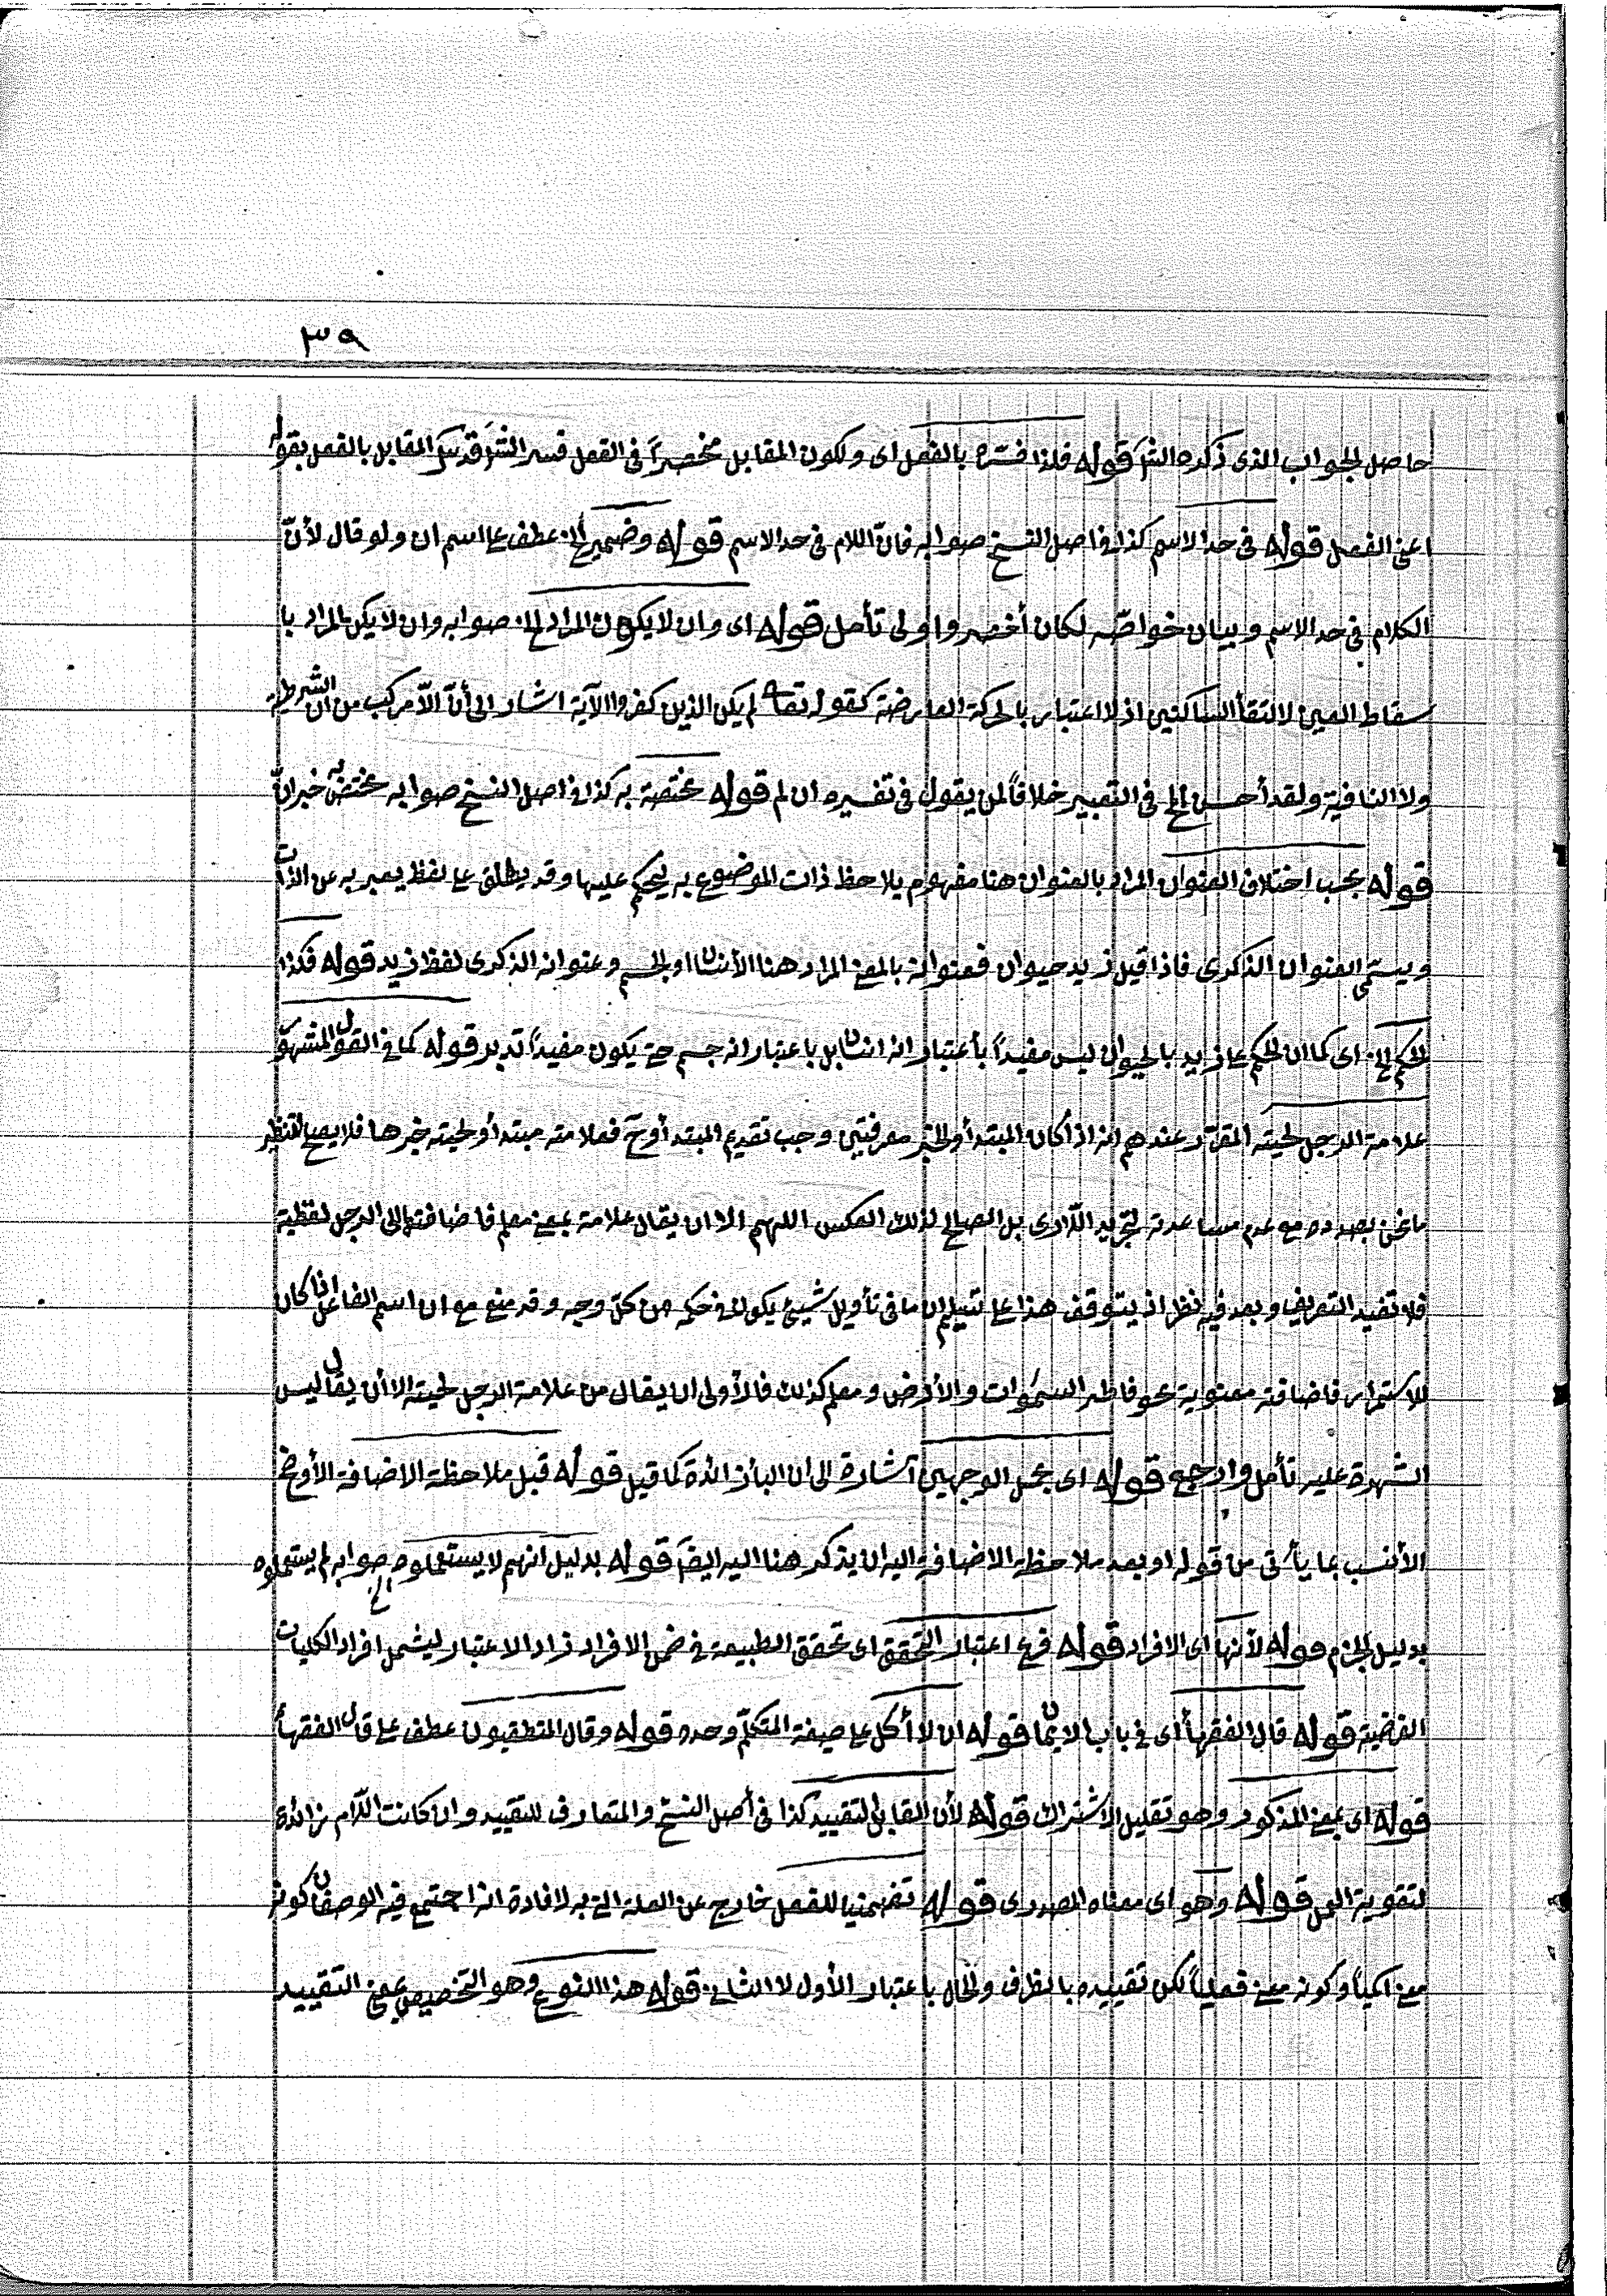 ٣٩
حاصل الجواب الذى ذكره الش قوله فلذا فسّره بالفصل اى ولكون المقابل منحصراً فى الفعل فسر الش قدس المقابل بالفعل بقوله
اعنى الفعل قوله فى حد الاسم كذا فى اصل النسخ صوابه فانّ اللام فى حد الاسم قوله وضمير الخ عطف على اسم ان ولو قال لأنّ
الكلام فى حد الاسم وبيان خواصّه لكان أخصر واولى تأمل قوله اى وان لا يكون المراد الخ صوابه وان لا يكن المراد با
سقاط العين لالتقأ الساكنين اذ لا اعتبار بالحركة العارضة كقوله تعا لم يكن الذين كفروا الآية اشار الى أنّ الاّ مركب من ان الشرطية
ولا النافية ولقد أحسن الخ فى التعبير خلافاً لمن يقول فى تفسيره ان لم قوله مختصة به كذا فى اصل النسخ صوابه مختص به خبر انّ
قوله بحسب اختلاف العنوان المراد بالعنوان هنا مفهوم يلاحظ ذات الموضوع به ليحكم عليها وقد يطلق على لفظ يعبر به عن الذات
ويسمّى العنوان الذكرى فاذا قيل زيد حيوان فعنوانه بالمعنى المراد هنا الأنسان او الجسم وعنوانه الذكرى لفظ زيد قوله فكذا
الحكم الخ اى كما ان الحكم على زيد بالحيوان ليس مفيداً بأعتبار انه انسان بل باعتبار انه جسم حتى يكون مفيداً تدبر قوله كما فى القول المشهور
علامة الرجل لحيته المقرّر عندهم انه اذا كان المبتدأ والخبر معرفتين وجب تقديم المبتدأ وح فعلامته مبتدأ ولحيته خبرها فلا يصح التنظير
ما نحن بصدده مع عدم مساعدة لتجريد الدّارى بل الصالح لذلك العكس اللهم الا ان يقال علامة بمعنى معلم فاضافتها الى الرجل لفظية
فلا تفيد التعريف وبعد فيه نظر اذ يتوقف هذا على تسليم ان ما فى تأويل شيئ يكون فى حكمه من كلّ وجه وقد منع مع ان اسم الفاعل اذا كان
للاستمرار فاضافته معنوية نحو فاطر السمٰوات والأرض ومعلم كذلك فالأولى ان يقال من علامة الرجل لحيته الا أن يقال ليس
الشهرة عليه تأمل وارجع قوله اى بحمل الوجهين اشارة الى ان البأ زائدة كما قيل قوله قبل ملاحظة الاضافة الأوضح
الأنسب بما يأتى من قوله او بعد ملاحظة الاضافة اليه ان يذكر هنا اليه ايضَ قوله بدليل انهم لا يستعملوه الخ صوابه لم يستعملوه
بدليل الجزم قوله لأنها اى الافراد قوله فرع اعتبار التحقق اى تحقق الطبيعة فى ضمن الافراد زاد الاعتبار ليشمل افراد الكليات
الفرضية قوله قال الفقهأ اى فى باب الايمان قوله ان لا أكل على صيغة المتكلّم وحده قوله وقال المنطقيون عطف على قال الفقهأ
قوله اى بمعنى المذكور وهو تقليل الاشتراك قوله لأن القابل لتقييد كذا فى أصل النسخ والمتعارف للتقييد وان كانت اللّام زائدة
لتقوية العمل قوله وهو اى معناه المصدرى قوله تضمنيا للفعل خارج عن العلة اتى به لافادة انه اجتمع فيه الوصفان كونه
معنى اسمياً وكونه معنى فعلياً لكن تقييده بالظرف والحال باعتبار الأول لا الثانى قوله هذا النوع وهو التخصيص بمعنى التقييد